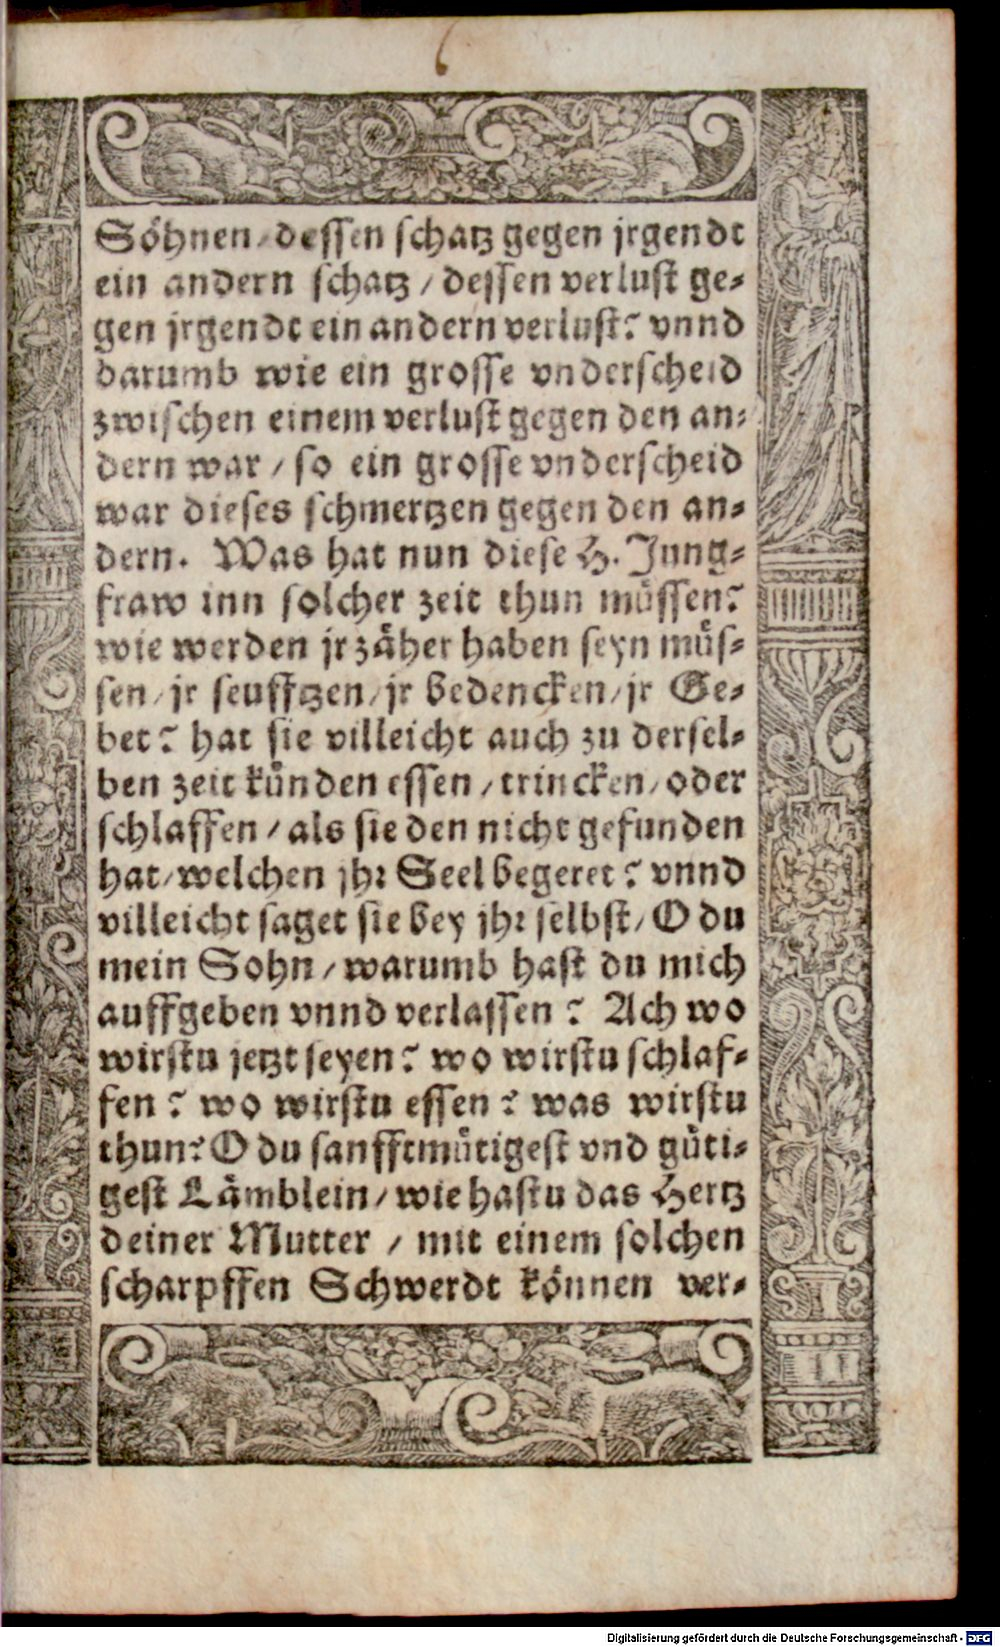 Söhnen/dessen schatz gegen jrgendt
ein andern schatz/dessen verlust ge-
gen jrgendt ein andern verlust? vnnd
darumb wie ein grosse vnderscheid
zwischen einem verlust gegen den an-
dern war/so ein grosse vnderscheid
war dieses schmertzen gegen den an-
dern. Was hat nun diese H. Jung-
fraw inn solcher zeit thun müssen?
wie werden jr zäher haben seyn müs-
sen/jr seufftzen/jr bedencken/jr Ge-
bet? hat sie villeicht auch zu dersel-
ben zeit künden essen/trincken/oder
schlaffen/als sie den nicht gefunden
hat/welchen jhr Seel begeret? vnnd
villeicht saget sie bey jhr selbst/O du
mein Sohn/warumb hast du mich
auffgeben vnnd verlassen? Ach wo
wirstu jetzt seyen? wo wirstu schlaf-
fen? wo wirstu essen? was wirstu
thun? O du sanfftmütigest vnd güti-
gest Lämblein/wie hastu das Hertz
deiner Mutter/mit einem solchen
scharpffen Schwerdt können ver-
Digitalisierung gefördert durch die Deutsche Forschungsgemeinschaft - DFG